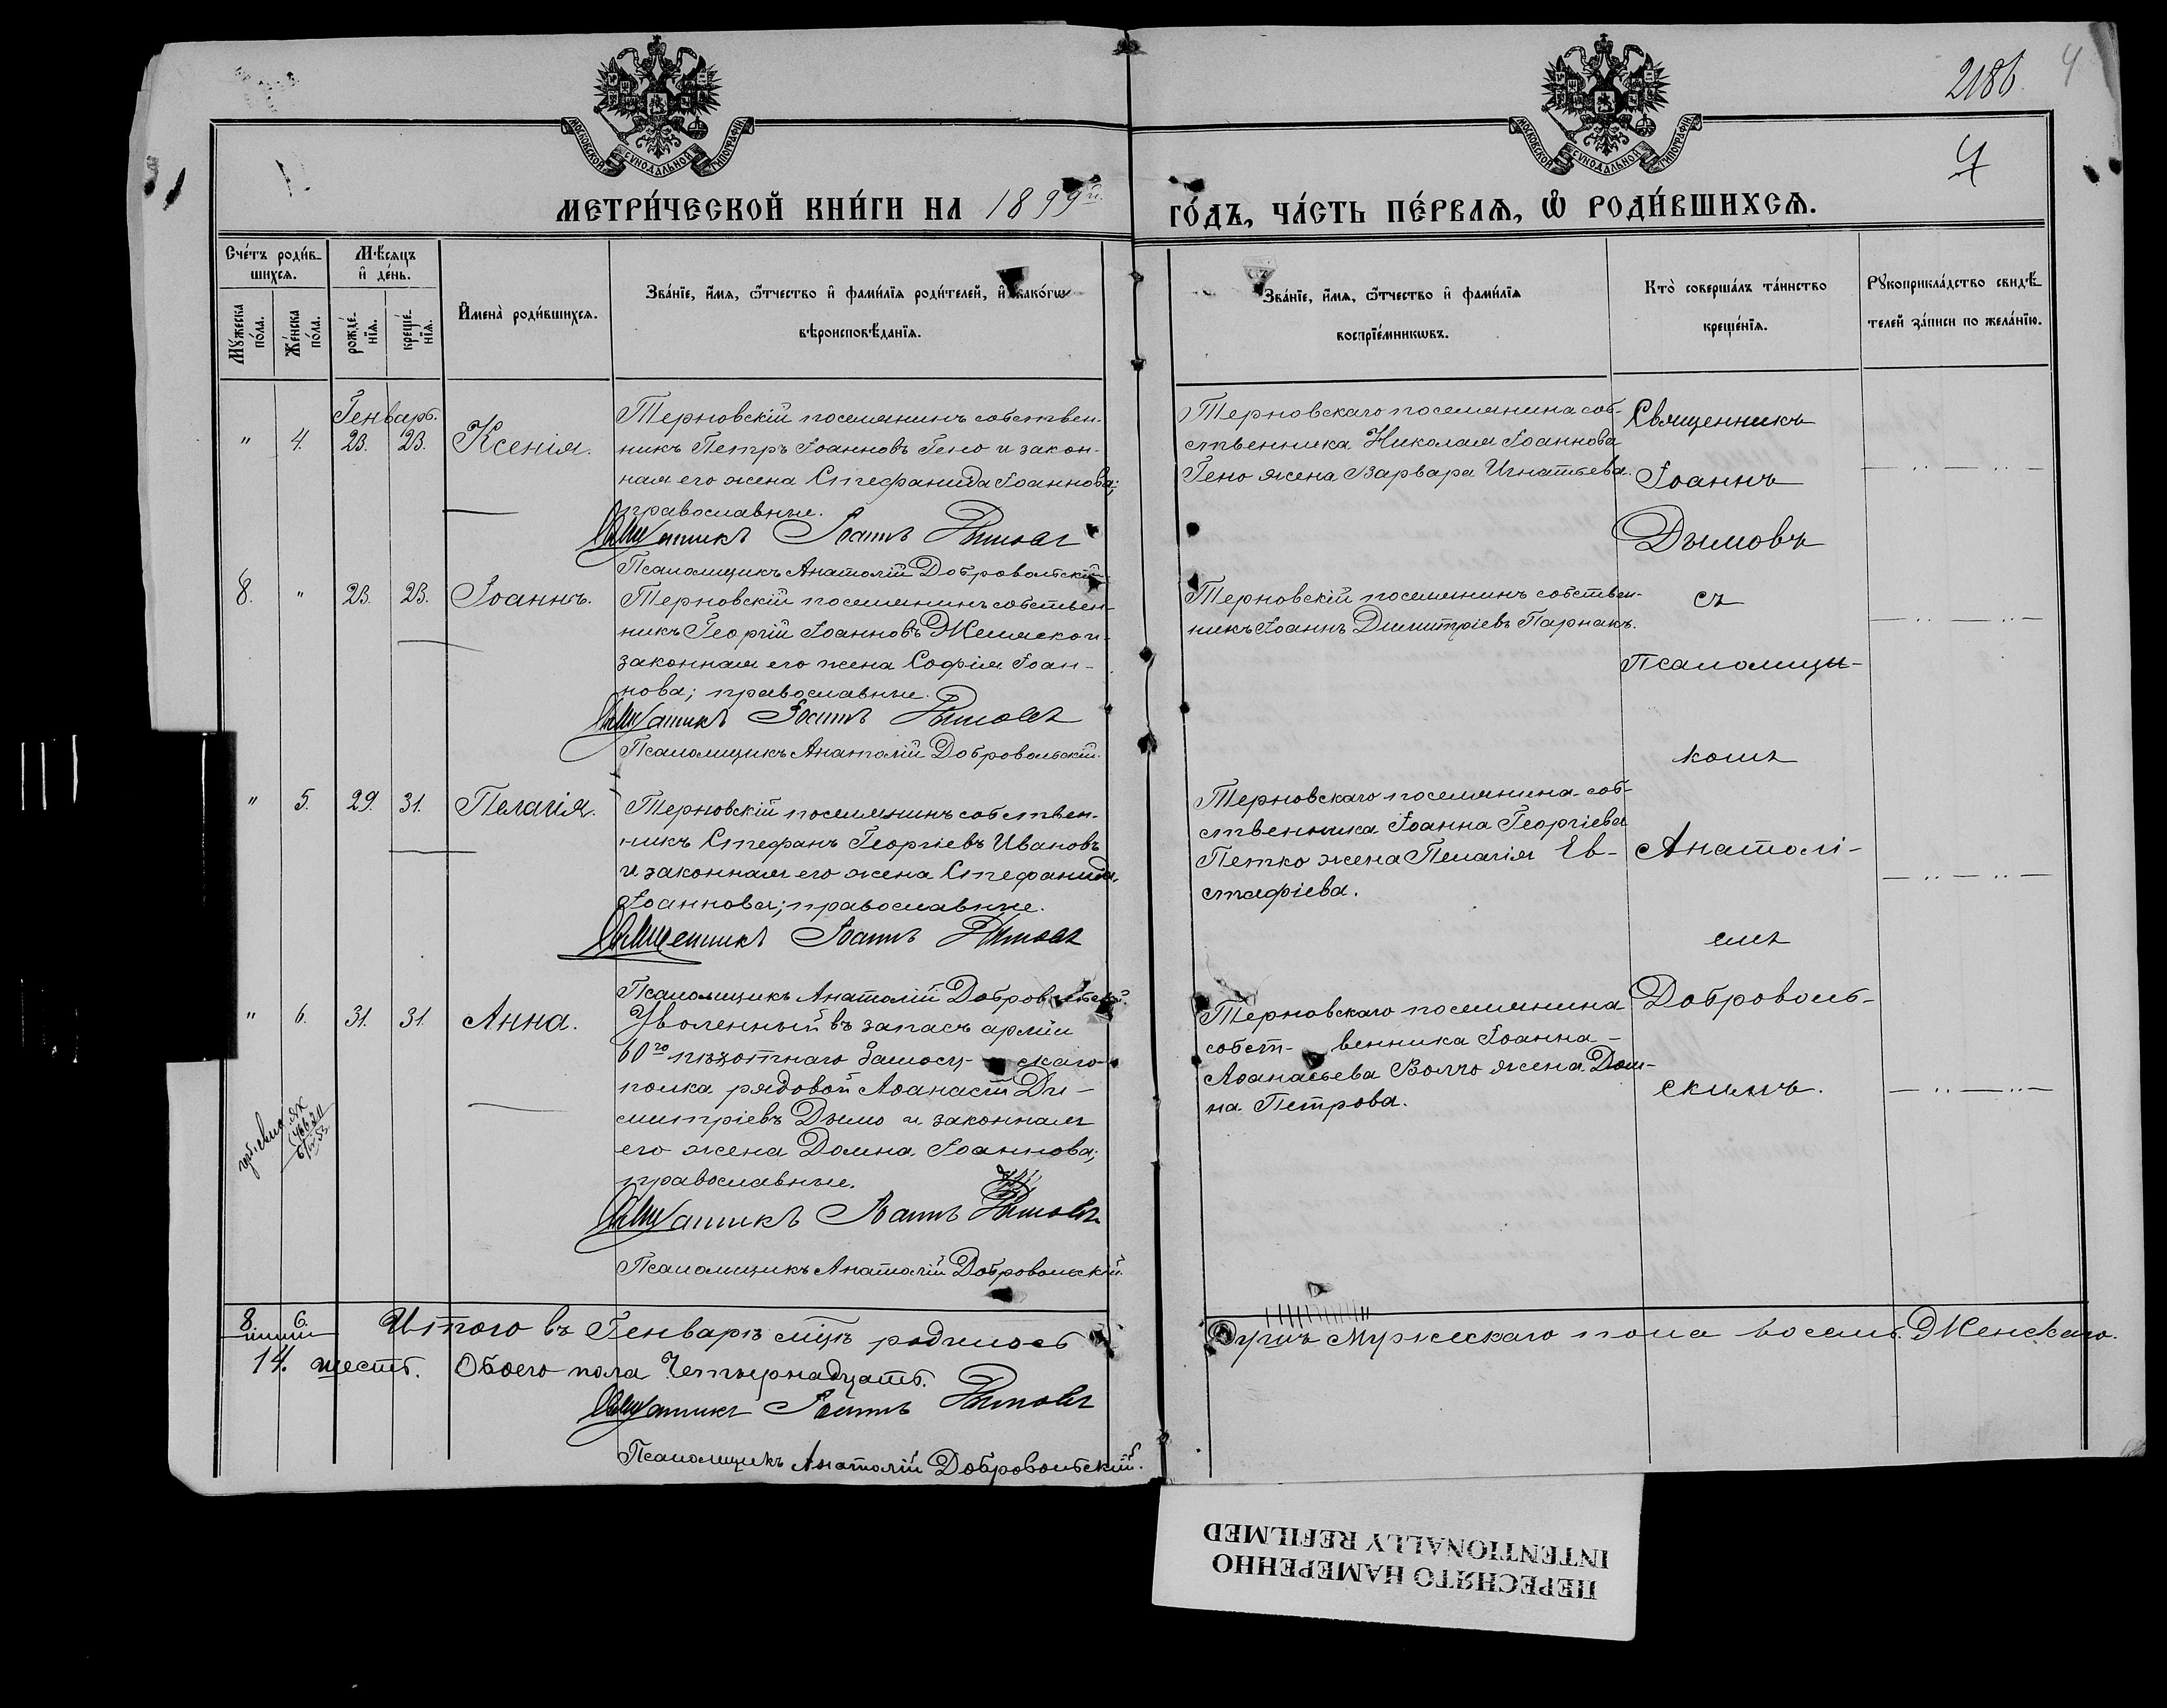 МОСКОВСКОЙ СѴНОДАЛЬНОЙ ТИПОГРАФІИ
МОСКОВСКОЙ СѴНОДАЛЬНОЙ ТИПОГРАФІИ
2186.
4
4
МЕТРИ́ЧЕСКОЙ КНИ́ГИ НА 1899й.
ГО́ДЪ, ЧА́СТЬ ПЕ́РВАѦ, Ѡ҆ РОДИ́ВШИХСѦ.
Сче́тъ роди́в-
шихся.
Мѣсяцъ
и҆ де́нь.
Мꙋжеска
по́ла.
Же́нска
по́ла.
рожде́-
нїя.
креще́-
нїя.
И҆мена̀ роди́вшихся.
Зва́нїе, и҆́мя, ѻ҆́тчество и҆ фами́лїя роди́телей, и҆ како́гѡ
вѣроисповѣ́данїя.
Зва́нїе, и҆́мя, ѻ҆́тчество и҆ фами́лїя
воспрїе́мникѡвъ.
Кто̀ соверша́лъ та́инство
креще́нїя.
Рꙋкоприкла́дство свидѣ́-
телей за́писи по жела́нїю.
Генварь.
" 4. 23. 23. Ксенія.
Терновскій поселянинъ собствен-
никъ Петръ Іоанновъ Гено и закон-
ная его жена Стефанида Іоаннова;
православные.
Священникъ Іоаннъ Дымовъ
Псаломщикъ Анатолій Добровольскій
Терновскаго поселянина соб-
ственника Николая Іоаннова
Гено жена Варвара Игнатьева.
Священникъ
Іоаннъ
Дымовъ
съ
Псаломщи-
комъ
Анатолі-
емъ
Доброволь-
скимъ.
8. " 23. 23. Іоаннъ.
Терновскій поселянинъ собствен-
никъ Георгій Іоанновъ Желяско и
законная его жена Софія Іоан-
нова; православные.
Священникъ Іоаннъ Дымовъ
Псаломщикъ Анатолій Добровольскій.
Терновскій поселянинъ собствен-
никъ Іоаннъ Димитріевъ Парнакъ.
" 5. 29. 31. Пелагія.
Терновскій поселянинъ собствен-
никъ Стефанъ Георгіевъ Ивановъ
и законная его жена Стефанида
Іоаннова; православные.
Священникъ Іоаннъ Дымовъ
Псаломщикъ Анатолій Добровольскій.
Терновскаго поселянина соб-
ственника Іоанна Георгіева
Петко жена Пелагія Ев-
стафіева.
" 6. 31. 31. Анна.
Уволенный въ запасъ арміи
60го пѣхотнаго Замосц-скаго
полка рядовой Аѳанасій Ди-
митріевъ Дымо и законная
его жена Домна Іоаннова;
православные.
Священникъ Іоаннъ Дымовъ
Псаломщикъ Анатолій Добровольскій.
Терновскаго поселянина
собст- венника Іоанна
Аѳанасьева Волчо жена Дом-
на Петрова.
8. 6. Итого въ Генварѣ мцѣ родилось
душъ Мужескаго пола восемь. Женскаго.
14. шесть. Обоего пола Четырнадцать.
Священникъ Іоаннъ Дымовъ
Псаломщикъ Анатолій Добровольскій.
ПЕРЕСНЯТО НАМЕРЕННО
INTENTIONALLY REFILMED